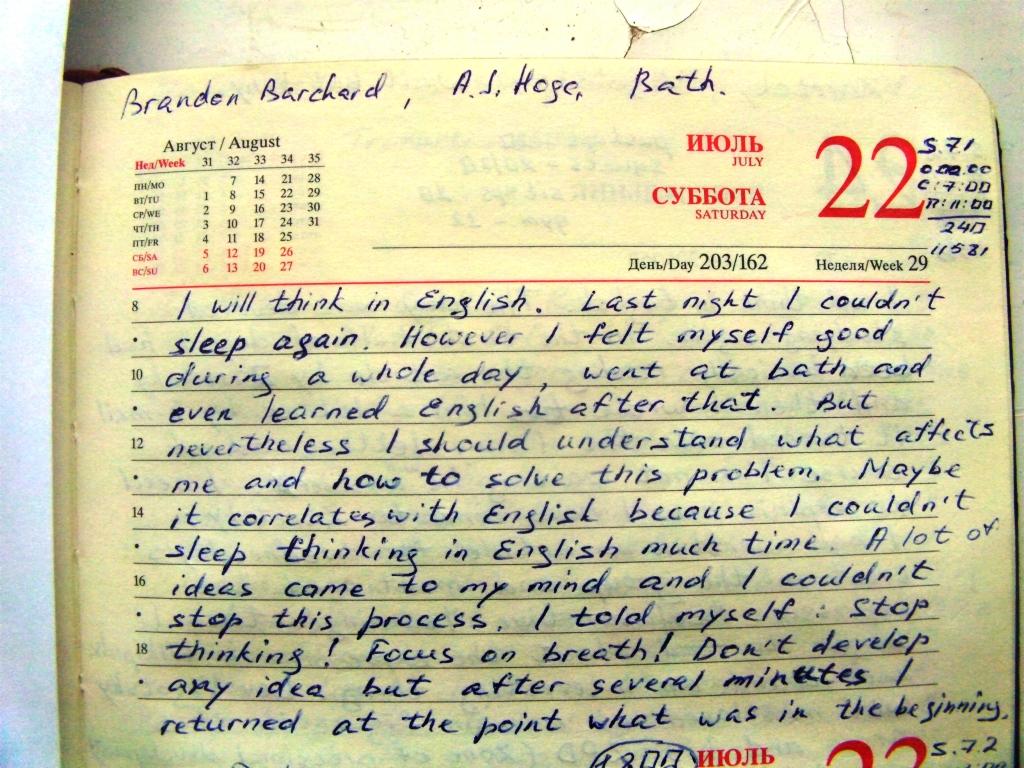 Brandon Barchard, A.J. Hoge, Bath.
Август / August
Нед/Week 31 32 33 34 35
ПН/MO 7 14 21 28
ВТ/TU 1 8 15 22 29
СР/WE 2 9 16 23 30
ЧТ/TH 3 10 17 24 31
ПТ/FR 4 11 18 25
СБ/SA 5 12 19 26
ВС/SU 6 13 20 27
ИЮЛЬ
JULY
СУББОТА
SATURDAY
22
5.71
C:7:00
П:11:00
240
11581
День/Day 203/162 Неделя/Week 29
8 I will think in English. Last night I couldn't
sleep again. However I felt myself good
10 during a whole day, went at bath and
even learned English after that. But
12 nevertheless I should understand what affects
me and how to solve this problem. Maybe
14 it correlates with English because I couldn't
sleep thinking in English much time. A lot of
16 ideas came to my mind and I couldn't
stop this process. I told myself: Stop
18 thinking! Focus on breath! Don't develop
any idea but after several minutes I
returned at the point what was in the beginning.
1800 ИЮЛЬ 23 5.72